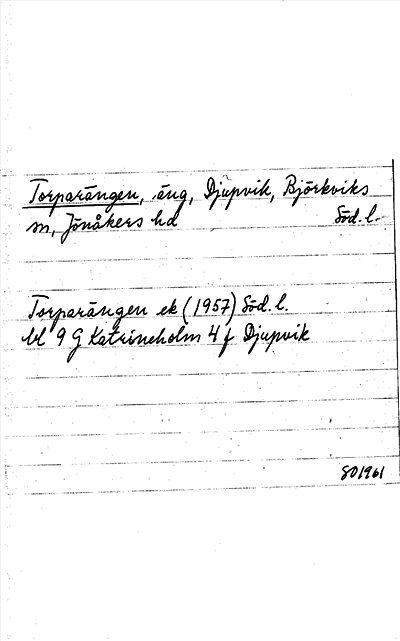 Torparängen, äng, Djupvik, Björkviks
sn, Jönåkers hd Söd. l.
Torparängen ek (1957) Söd. l.
bl 9 G Katrineholm 4 f Djupvik
SO1961